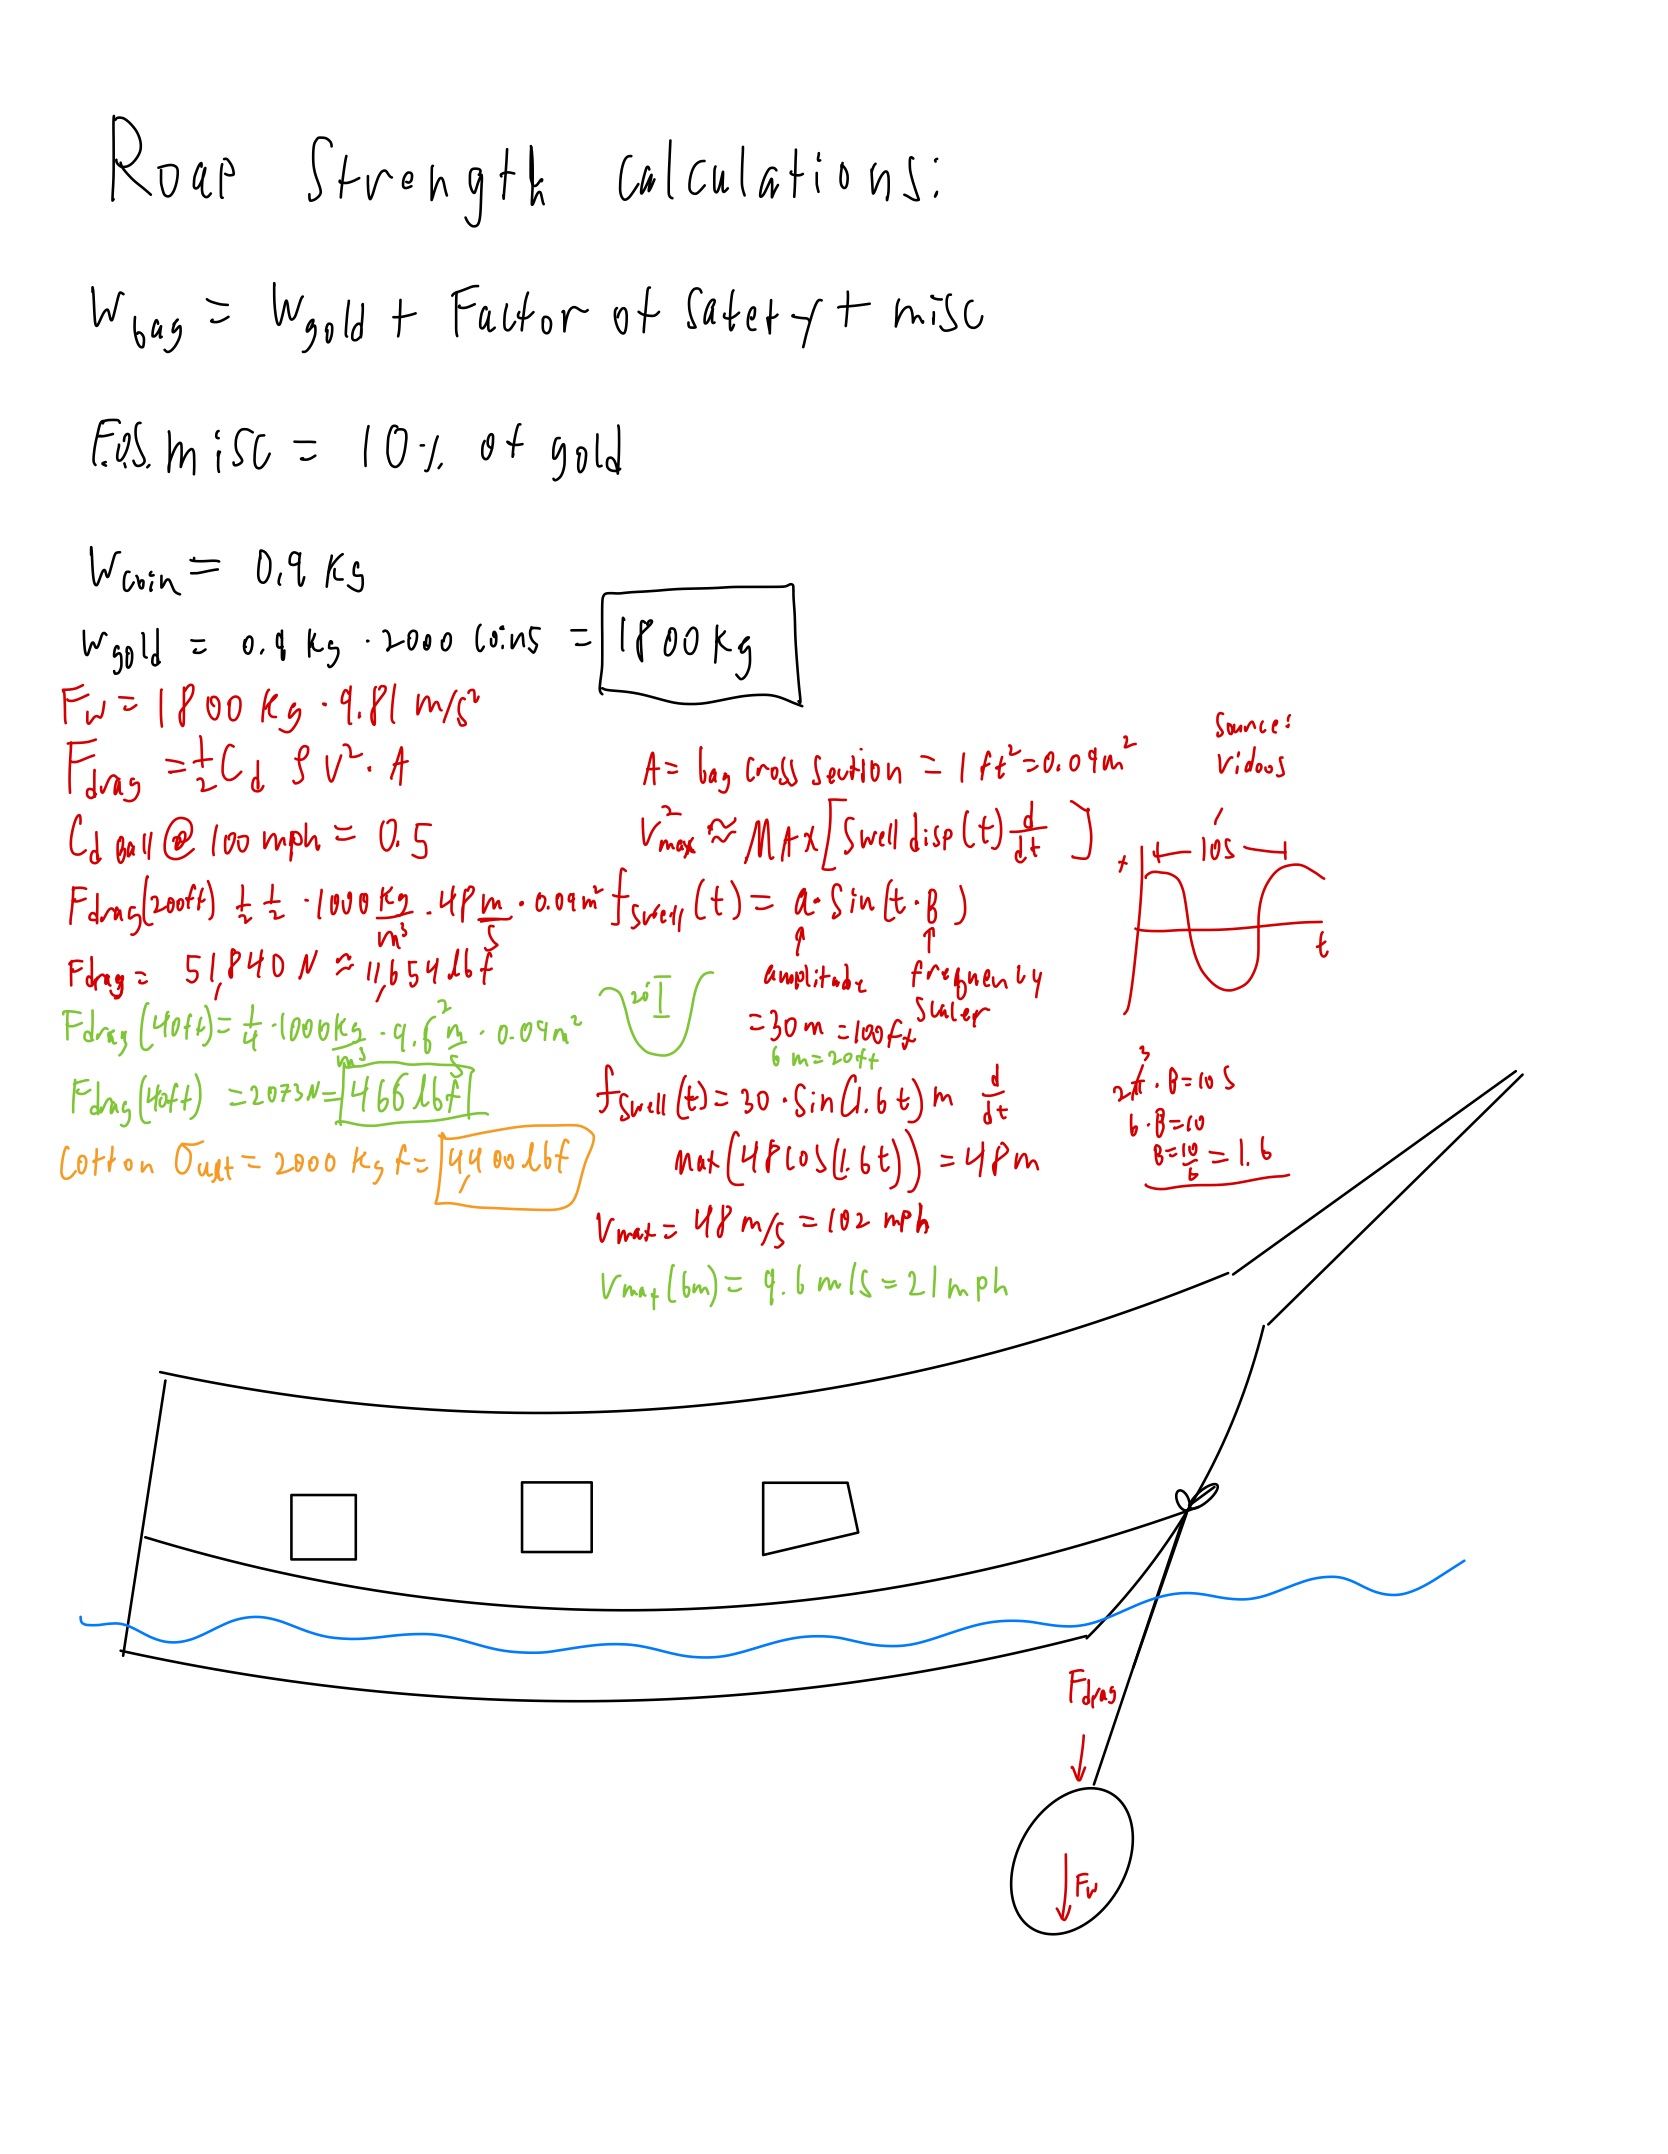 Roap Strength calculations:
W bag = W gold + Factor of Satety + misc
F.o.S. misc = 10% of gold
W coin = 0.9 Kg
W gold = 0.9 Kg · 2000 coins = 1800 kg
F w = 1800 Kg · 9.81 m/s²
F drag = 1/2 C d ρ V² · A
C d Ball @ 100 mph = 0.5
F drag (200ft) 1/2 1/2 · 1000 Kg/m³ · 48 m/s · 0.09m²
F drag = 51,840 N ≈ 11,654 lbf
F drag (40ft) = 1/4 · 1000 kg/m³ · 9.6² m/s · 0.09m²
F drag (40ft) = 2073N = 466 lbf
Cotton σ ult = 2000 Kg f = 4,400 lbf
A = bag cross section = 1 ft² = 0.09m²
V² max ≈ MAX [Swell disp (t) d/dt ]
f swell (t) = a · Sin (t · B)
↑ ↑
amplitude frequency
scaler
= 30 m = 100 ft
6 m = 20 ft
20' I
f swell (t) = 30 · Sin (1.6 t) m d/dt
max (48 cos (1.6 t)) = 48 m
V max = 48 m/s = 102 mph
V max (6m) = 9.6 m/s = 21 mph
Source:
Vidoos
+ 10s
t
3
2π · B = 10 S
6 · B = 10
B = 10/6 = 1.6
F drag
F w